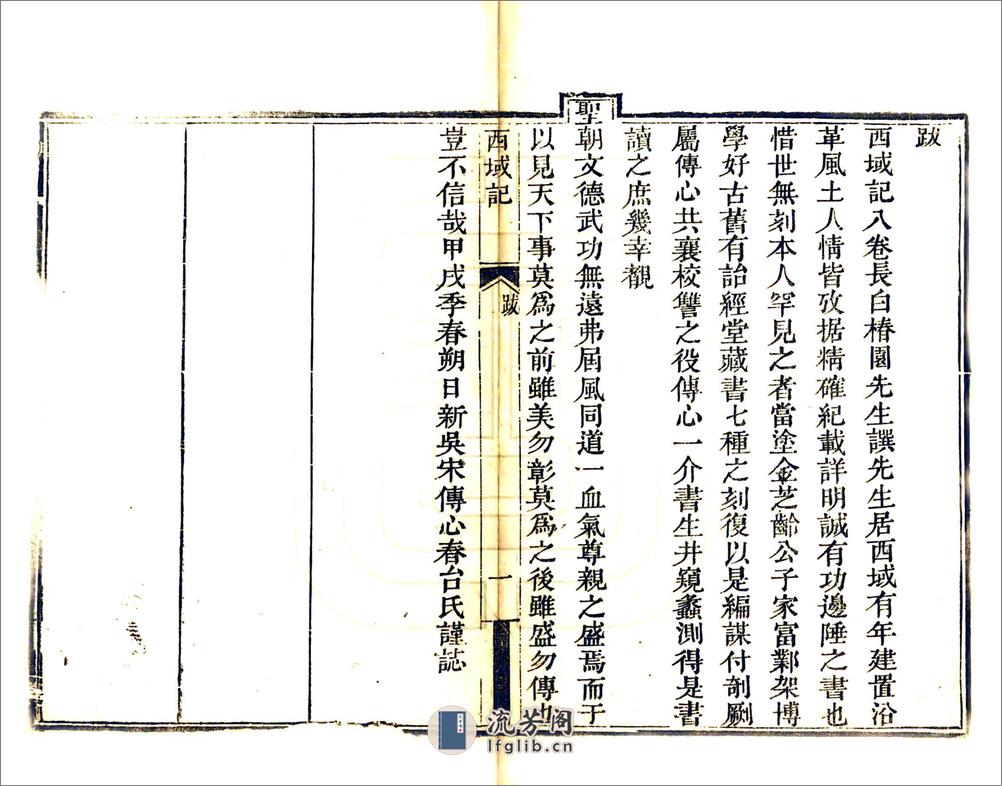 跋
西域記八卷長白椿園先生譔先生居西域有年建置沿
革風土人情皆攷据精確紀載詳明誠有功邊陲之書也
惜世無刻本人罕見之者當塗金芝齡公子家富鄴架博
學好古舊有詒經堂藏書七種之刻復以是編謀付剞劂
屬傳心共襄校讐之役傳心一介書生井窺蠡測得是書
讀之庶幾幸覩
聖朝文德武功無遠弗屆風同道一血氣尊親之盛焉而于
以見天下事莫爲之前雖美勿彰莫爲之後雖盛勿傳也
西域記 跋 一
豈不信哉甲戌季春朔日新吳宋傳心春台氏謹誌
流芳阁
lfglib.cn